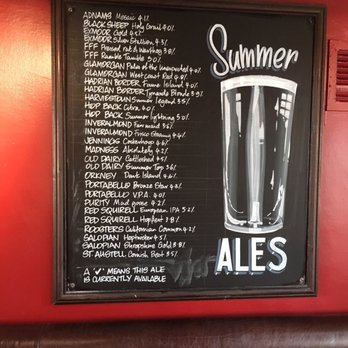 ADNAMS Mosaic 4.1%
BLACK SHEEP Holy Grail 4.0%
EXMOOR Gold 4.5%
EXMOOR Silver Stallion 4.3%
FFF Pressed rat & Warthog 3.8%
FFF Rumble 5.0%
GLAMORGAN
GLAMORGAN West coast Red 4.8%
HADRIAN BORDER Farne Island 4.0%
HADRIAN BORDER Tyneside Blonde 3.9%
HARVIESTOUN Summer legend 3.5%
HOP BACK Citra 4.0%
HOP BACK Summer lightning 5.0%
INVERALMOND Fair maid 3.6%
INVERALMOND Frisco Steamy 4.4%
JENNINGS
MADNESS Absolutely 4.2%
OLD DAIRY Cattleshed 4.5%
OLD DAIRY Summer Top 3.6%
ORKNEY Dark Island 4.6%
PORTABELLO Bronze Star 4.3%
PORTABELLO V.P.A. 4.0%
PURITY Mad goose 4.2%
RED SQUIRELL European IPA 5.2%
RED SQUIRELL Hopfest 3.8%
ROOSTERS Californian Common 4.2%
SALOPIAN Hoptwister 4.5%
SALOPIAN Shropshire Gold 3.8%
ST AUSTELL Cornish Best 3.5%
A '✓' MEANS THIS ALE
IS CURRENTLY AVAILABLE
Summer
ALES